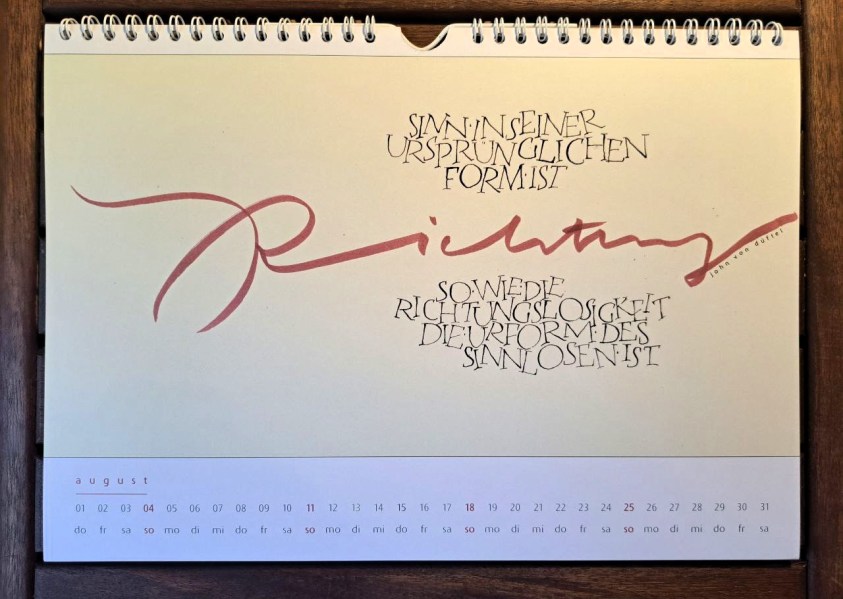 SINN·IN SEINER
URSPRÜNGLICHEN
FORM·IST
Richtung
john von düffel
SO·WIE DIE
RICHTUNGSLOSIGKEIT
DIE·URFORM·DES
SINNLOSEN·IST
august
01 02 03 04 05 06 07 08 09 10 11 12 13 14 15 16 17 18 19 20 21 22 23 24 25 26 27 28 29 30 31
do fr sa so mo di mi do fr sa so mo di mi do fr sa so mo di mi do fr sa so mo di mi do fr sa